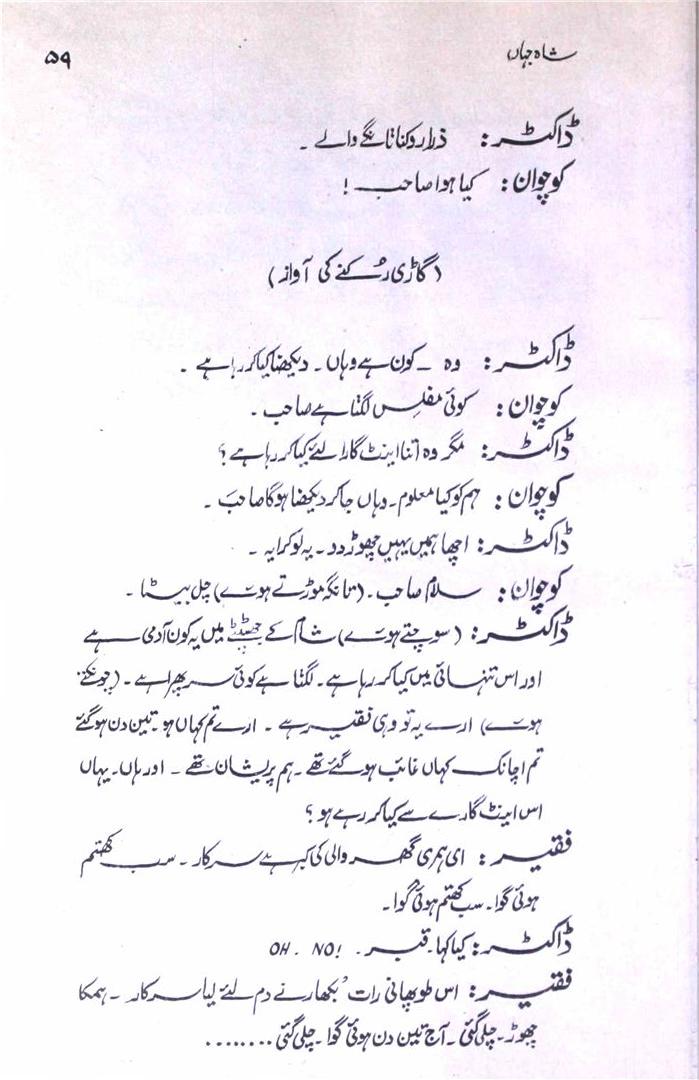 شاہ جہاں ۵۹
ڈاکٹر: ذرا روکنا تانگے والے ۔
کوچوان: کیا ہوا صاحب !
(گاڑی رُکنے کی آواز)
ڈاکٹر: وہ ــ کون ہے وہاں ۔ دیکھنا کیا کر رہا ہے ۔
کوچوان: کوئی مفلس لگتا ہے صاحب ۔
ڈاکٹر: مگر وہ اتنا اینٹ گارا لئے کیا کر رہا ہے ؟
کوچوان: ہم کو کیا معلوم ۔ وہاں جا کر دیکھنا ہوگا صاحب ۔
ڈاکٹر: اچھا ہمیں یہیں چھوڑ دو ۔ یہ لو کرایہ ۔
کوچوان: سلام صاحب ۔ (تانگہ موڑتے ہوئے) چل بیٹا ۔
ڈاکٹر: (سوچتے ہوئے) شام کے جھٹپٹے میں یہ کون آدمی ہے
اور اس تنہائی میں کیا کر رہا ہے ۔ لگتا ہے کوئی سر پھرا ہے ۔ (چونکتے
ہوئے) ارے یہ تو وہی فقیر ہے ۔ ارے تم کہاں ہو ۔ تین دن ہو گئے
تم اچانک کہاں غائب ہو گئے تھے ۔ ہم پریشان تھے ۔ اور ہاں ۔ یہاں
اس اینٹ گارے سے کیا کر رہے ہو ؟
فقیر: ای ہمری گھر والی کی کبر ہے سرکار ۔ سب کھتم
ہوئی گوا ۔ سب کھتم ہوئی گوا ۔
ڈاکٹر: کیا کہا ۔ قبر ۔ OH . NO!
فقیر: اس طوپھانی رات ’ بکھار نے دم لئے لیا سرکار ۔ ہمکا
چھوڑ ۔ چلی گئی ۔ آج تین دن ہوئی گوا ۔ چلی گئی ........